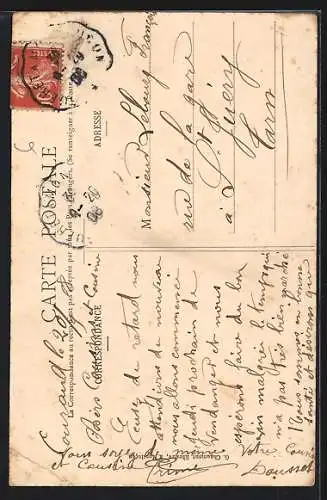 CARTE POSTALE
La Correspondance au recto n'est pas acceptée par tous les Pays Étrangers. (Se renseigner à la Poste)
CORRESPONDANCE
ADRESSE
Chers Cousin et Cousine
Cause de retard nous
attendions de nouveau
nous allons commencer
jeudi prochain de
vendanger et nous
espérons faire du bon
vin malgré le temps qui
n'a pas très bien marché
Nous sommes en bonne
santé et désirons que
vous soyez de même
Votre Cousin
et Cousine
Monsieur François
rue de la gare
à St Juéry
Tarn